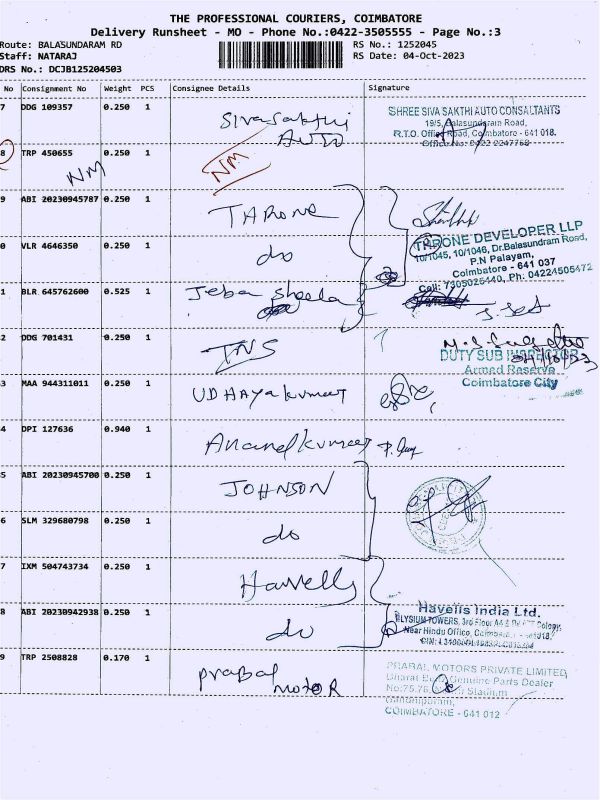 THE PROFESSIONAL COURIERS, COIMBATORE
Delivery Runsheet - MO - Phone No.:0422-3505555 - Page No.:3
Route: BALASUNDARAM RD
RS No.: 1252045
Staff: NATARAJ
RS Date: 04-Oct-2023
DRS No.: DCJB125204503
No Consignment No Weight PCS Consignee Details Signature
7 DDG 109357 0.250 1 Sivasakthi
AUTO
SHREE SIVA SAKTHI AUTO CONSULTANTS
19/5, Balasundaram Road,
R.T.O. Office Road, Coimbatore - 641 018.
Office No: 0422 2247768
8 TRP 450655 0.250 1 NM
NM
9 ABI 20230945787 0.250 1 THRone
THRONE DEVELOPER LLP
10/1045, 10/1046, Dr.Balasundram Road,
P.N Palayam,
Coimbatore - 641 037
Cell: 7305025440, Ph: 04224505472
0 VLR 4646350 0.250 1 do
1 BLR 645762600 0.525 1 Jeba Sheela
2 DDG 701431 0.250 1 TNS
DUTY SUB INSPECTOR
Armed Reserve
Coimbatore City
3 MAA 944311011 0.250 1 UDHAYAkumar
4 DPI 127636 0.940 1 Anandkumar
5 ABI 20230945700 0.250 1 JOHNSON
6 SLM 329680798 0.250 1 do
7 IXM 504743734 0.250 1 Havells
8 ABI 20230942938 0.250 1 do
Havells India Ltd.
ELYSIUM TOWERS, 3rd Floor
Near Hindu Office,
9 TRP 2508828 0.170 1 prabal
motoR
PRABAL MOTORS PRIVATE LIMITED
Bharat Benz Genuine Parts Dealer
Stadium
COIMBATORE - 641 012